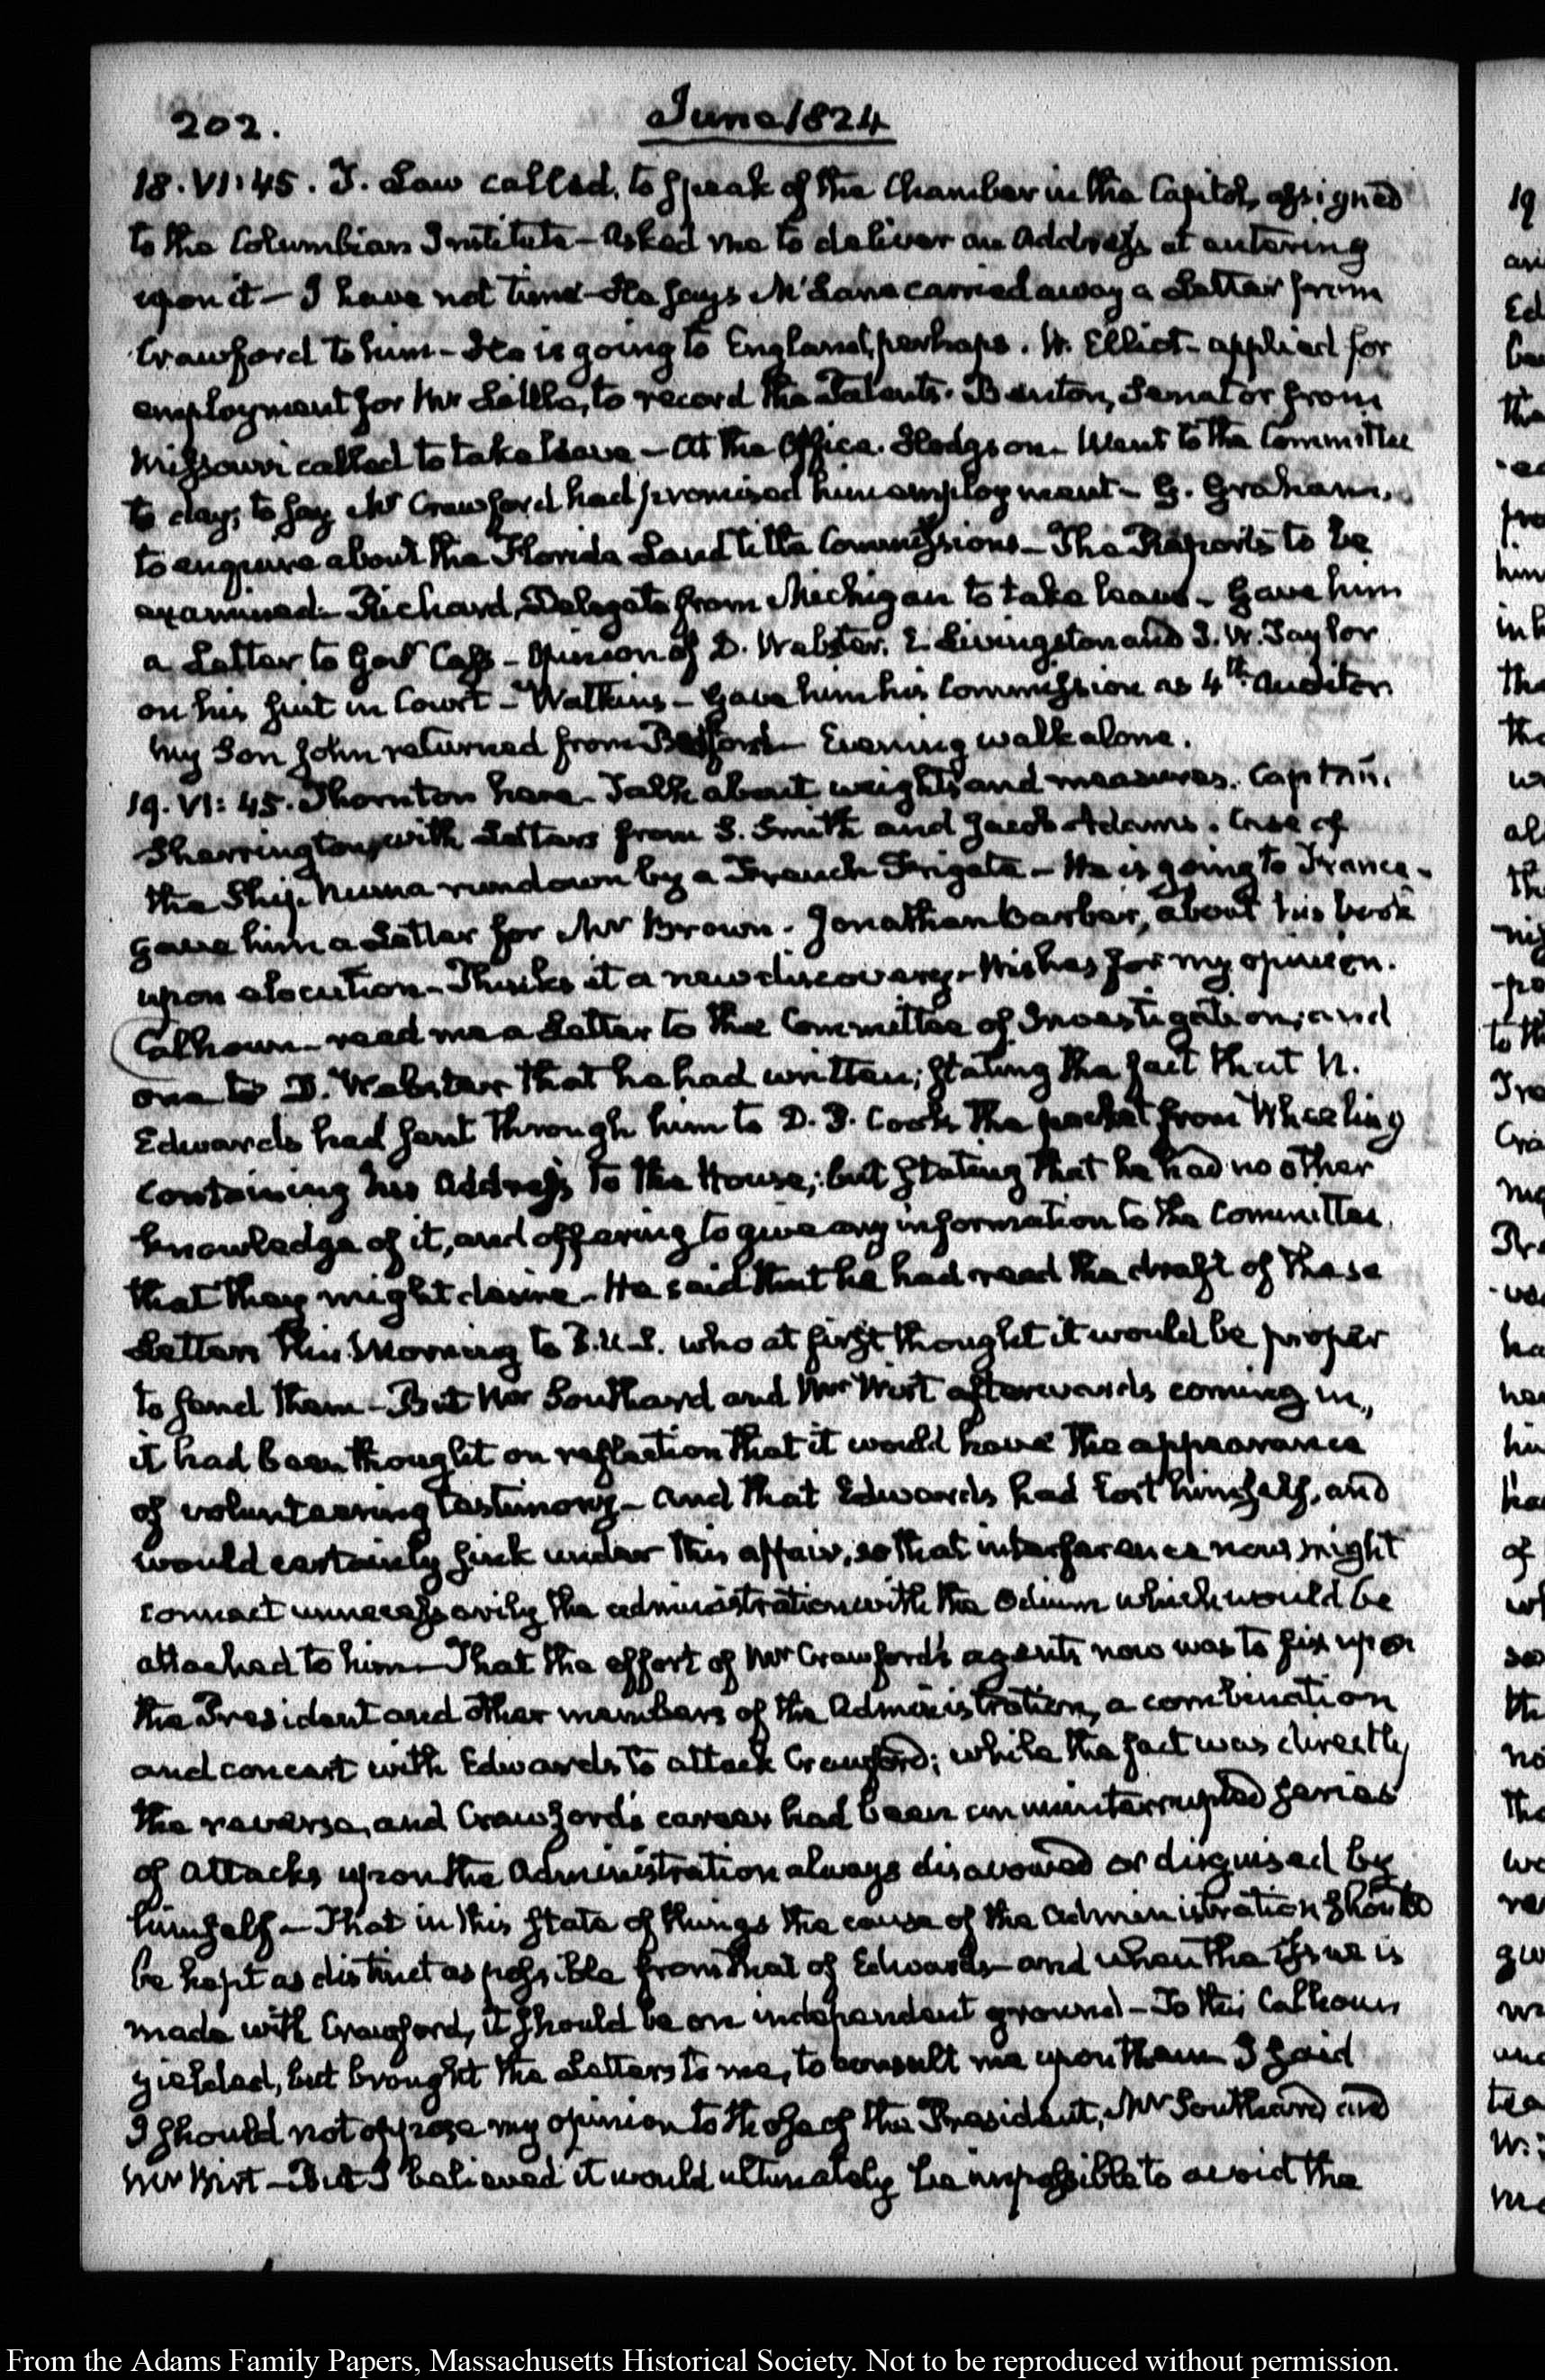 202.
June 1824
18. VI:45. T. Law called, to speak of the Chamber in the Capitol, assigned
to the Columbian Institute – Asked me to deliver an Address at entering
upon it – I have not time – He says McLane carried away a Letter from
Crawford to him – He is going to England, perhaps. W. Elliot – applied for
employment for Mr Little, to record the Patents. Benton, Senator from
Missouri called to take leave – At the Office. Hodgson – Went to the Committee
to day, to say Mr Crawford had promised him employment – G. Graham,
to enquire about the Florida Land title Commissions – The Reports to be
examined – Richard, Delegate from Michigan to take leave – Gave him
a Letter to Govr Cass – Opinion of D. Webster, E. Livingston and J. W. Taylor
on his suit in Court – Watkins – Gave him his Commission as 4th Auditor
my Son John returned from Bedford – Evening walk alone.
19. VI:45. Thornton here – Talk about weights and measures. Captain
Sherrington, with Letters from S. Smith and Jacob Adams. Case of
the Ship Numa run down by a French Frigate – He is going to France –
gave him a Letter for Mr Brown. Jonathan Barber, about his book
upon elocution – Thinks it a new discovery – Wishes for my opinion.
Calhoun – read me a Letter to the Committee of Investigation; and
one to D. Webster that he had written; stating the fact that N.
Edwards had sent through him to D. P. Cook the packet from Wheeling
containing his Address to the House; but stating that he had no other
knowledge of it, and offering to give any information to the Committee
that they might desire – He said that he had read the draft of these
Letters this Morning to P.U.S. who at first thought it would be proper
to send them – But Mr Southard and Mr Wirt afterwards coming in,
it had been thought on reflection that it would have the appearance
of volunteering testimony – and that Edwards had lost himself, and
would certainly sink under this affair, so that interference now might
connect unnecessarily the administration with the odium which would be
attached to him – That the effort of Mr Crawford's agents now was to fix upon
the President and other members of the Administration, a combination
and concert with Edwards to attack Crawford; while the fact was directly
the reverse, and Crawford's career had been an uninterrupted series
of attacks upon the Administration always disavowed or disguised by
himself – That in this state of things the cause of the Administration should
be kept as distinct as possible from that of Edwards – and when the issue is
made with Crawford, it should be on independent ground – To this Calhoun
yielded, but brought the Letters to me, to consult me upon them – I said
I should not oppose my opinion to those of the President, Mr Southard and
Mr Wirt – But I believed it would ultimately be impossible to avoid the
From the Adams Family Papers, Massachusetts Historical Society. Not to be reproduced without permission.